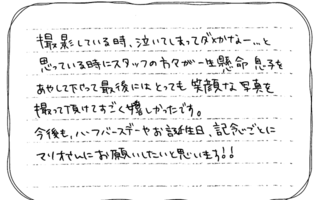 撮影している時、泣いてしまってダメかなー…と
思っている時にスタッフの方々が一生懸命息子を
あやして下さって最後にはとっても笑顔な写真を
撮って頂けてすごく嬉しかったです。
今後も、ハーフバースデーやお誕生日、記念ごとに
マリオさんにお願いしたいと思います!!